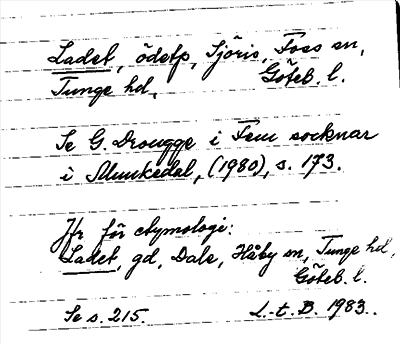 Ladet, ödetp, Sjöris, Foss sn,
Tunge hd, Göteb. l.
Se G. Drougge i Fem socknar
i Munkedal, (1980), s. 173.
Jfr för etymologi:
Ladet, gd, Dale, Håby sn, Tunge hd,
Göteb. l.
Se s. 215. L-t. B. 1983.